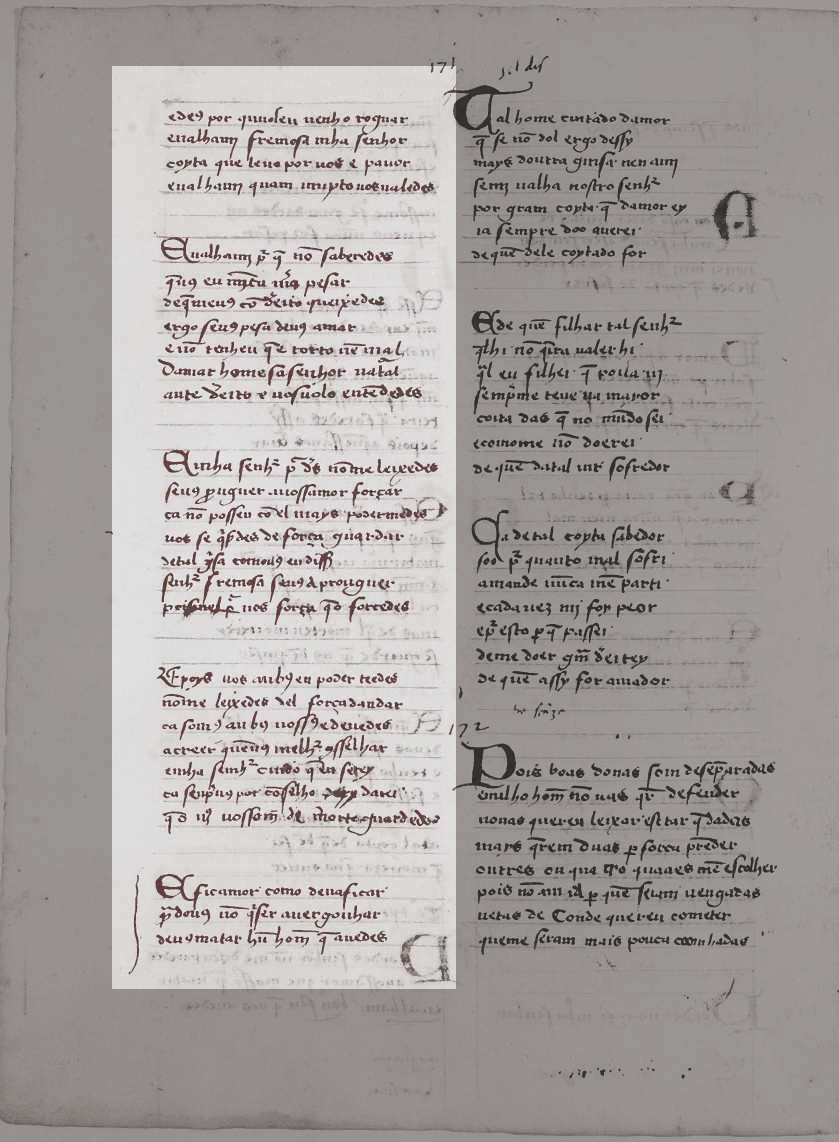 171
edeꝯ por qͥuoleu uenho roguar
eualham fremosa mha senhor
coyta que leuo por uos e pauor
eualham quam muyto uos ualedes
Eualham pͬ q̄ nō saberedes
pesar
deq̄ meuꝯ cō d̾eito queixedes
ergo seuꝯ pesa deuꝯ amar
e nō tenheu q̄ e torto nē mal
Damar home sā senhor nat̄al
ante d̾eito e uosuolo entēdedes
E mha senhͬ pͬ dš nōme leixedes
seuꝯ prouguer auossamor forçar
ca nō posseu cō el mays poder medes
uos se qͥs̾des de força guardar
detal gͥsa comouꝯ eu diss̾
senhͬ fremosa seuꝯ a prouguer
pͬ uos força q̄ō forcedes
E poys uos anbꝯ en poder teedes
nōme leixedes del força dandar
ca somꝯ anbꝯ uossꝯ e deuedes
acreer quēuꝯ melhͬ ꝯsselhar
emha senhͬ cuido q̄ eu serey
ca senpͬuꝯ por cōselho darei
q̄ ō uꝯ uossom̄ de morte guardedes
E ficamor como deuaficar
pͬdouꝯ nō qͥser auergonhar
deuꝯ matar hū hom̄ q̄ auedes
Tal home cuitado damor
q̄ se nō dol ergo dessy
mays doutra guisa nen am
sem ualha nostro senhͬ
por gram coyta q̄ damor ey
ia sempre doo auerei
de quē dele coytado for
E de quē filhar tal senhͬ
q̄lhi nō qͥira ualer hi
qͣl eu filhei q̄
sempͬme teue ua mayor
coita das q̄ no mūdo sei
econome nō doerei
de quē datal mͬ sofredor
Ca de tal coyta sabedor
soo pͬ quanto mal sofri
amande nūca mē parti
ecada uez mj foy peor
epͬ esto ꝑ q̄ passei
deme doer gm̄ d̾eitey
de quē assy for amador
172
Pois boas donas som desenꝑaradas
e nulho hom̄ nō uas qͬ defender
nonas quereu leixar estar q̄dadas
mays q̄rem duas ꝑ força prēder
ou tres ou quaes mē escolher
pois nō am ia ꝑ quē seiam uengadas
netas de Conde quereu cometer
queme seram mais pouca coomhadas